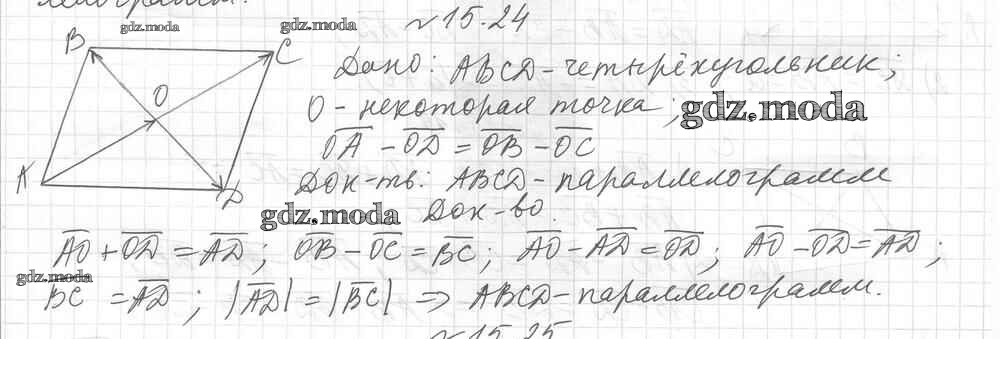 №15.24
gdz.moda
gdz.moda
B
C
O
A
D
Дано: ABCD - четырёхугольник;
O - некоторая точка;
gdz.moda
OA - OD = OB - OC
Док-ть: ABCD - параллелограмм
gdz.moda
Док-во.
AO + OD = AD; OB - OC = BC; AO - AD = OD; AO - OD = AD;
gdz.moda
BC = AD; |AD| = |BC| => ABCD - параллелограмм.
№15.25